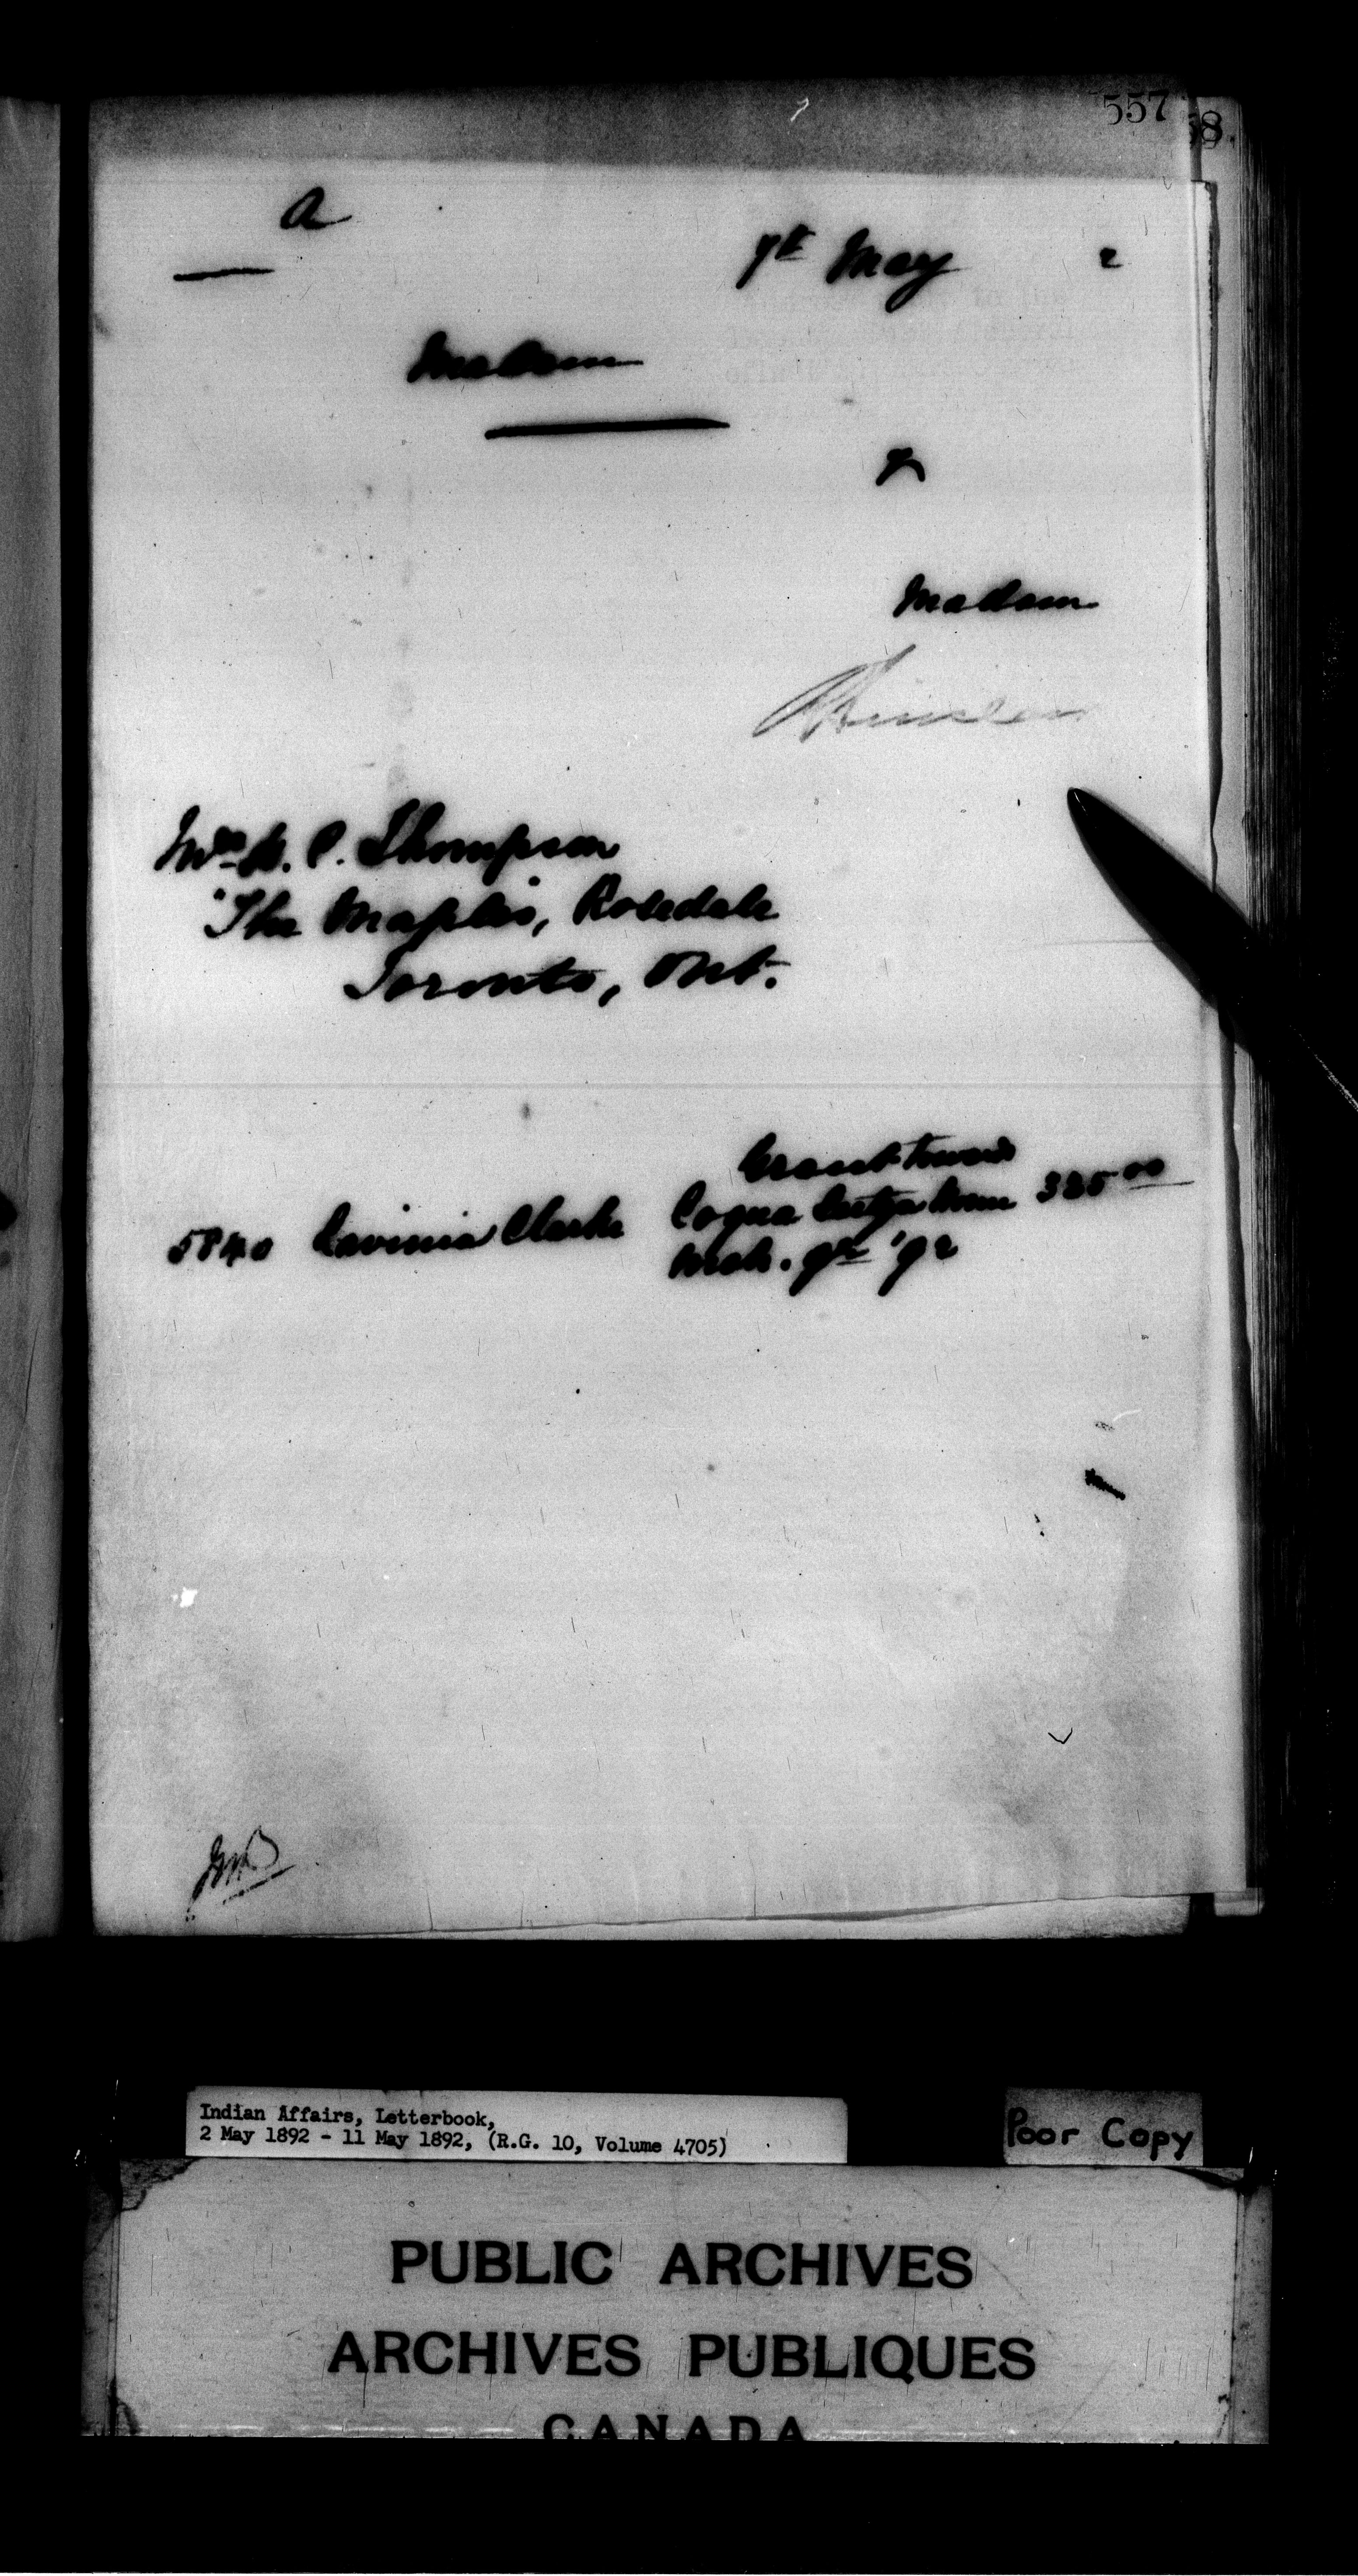 557
58.
a
7th May 2
Madam
Madam
Mrs. B. P. Thompson
"The Maples, Rosedale
Toronto, Ont.
Grant towards
5840 Lavinia Clarke Coqualeetza Home 325 00
Mch. qr '92
Indian Affairs, Letterbook,
2 May 1892 - 11 May 1892, (R.G. 10, Volume 4705)
Poor Copy
PUBLIC ARCHIVES
ARCHIVES PUBLIQUES
CANADA